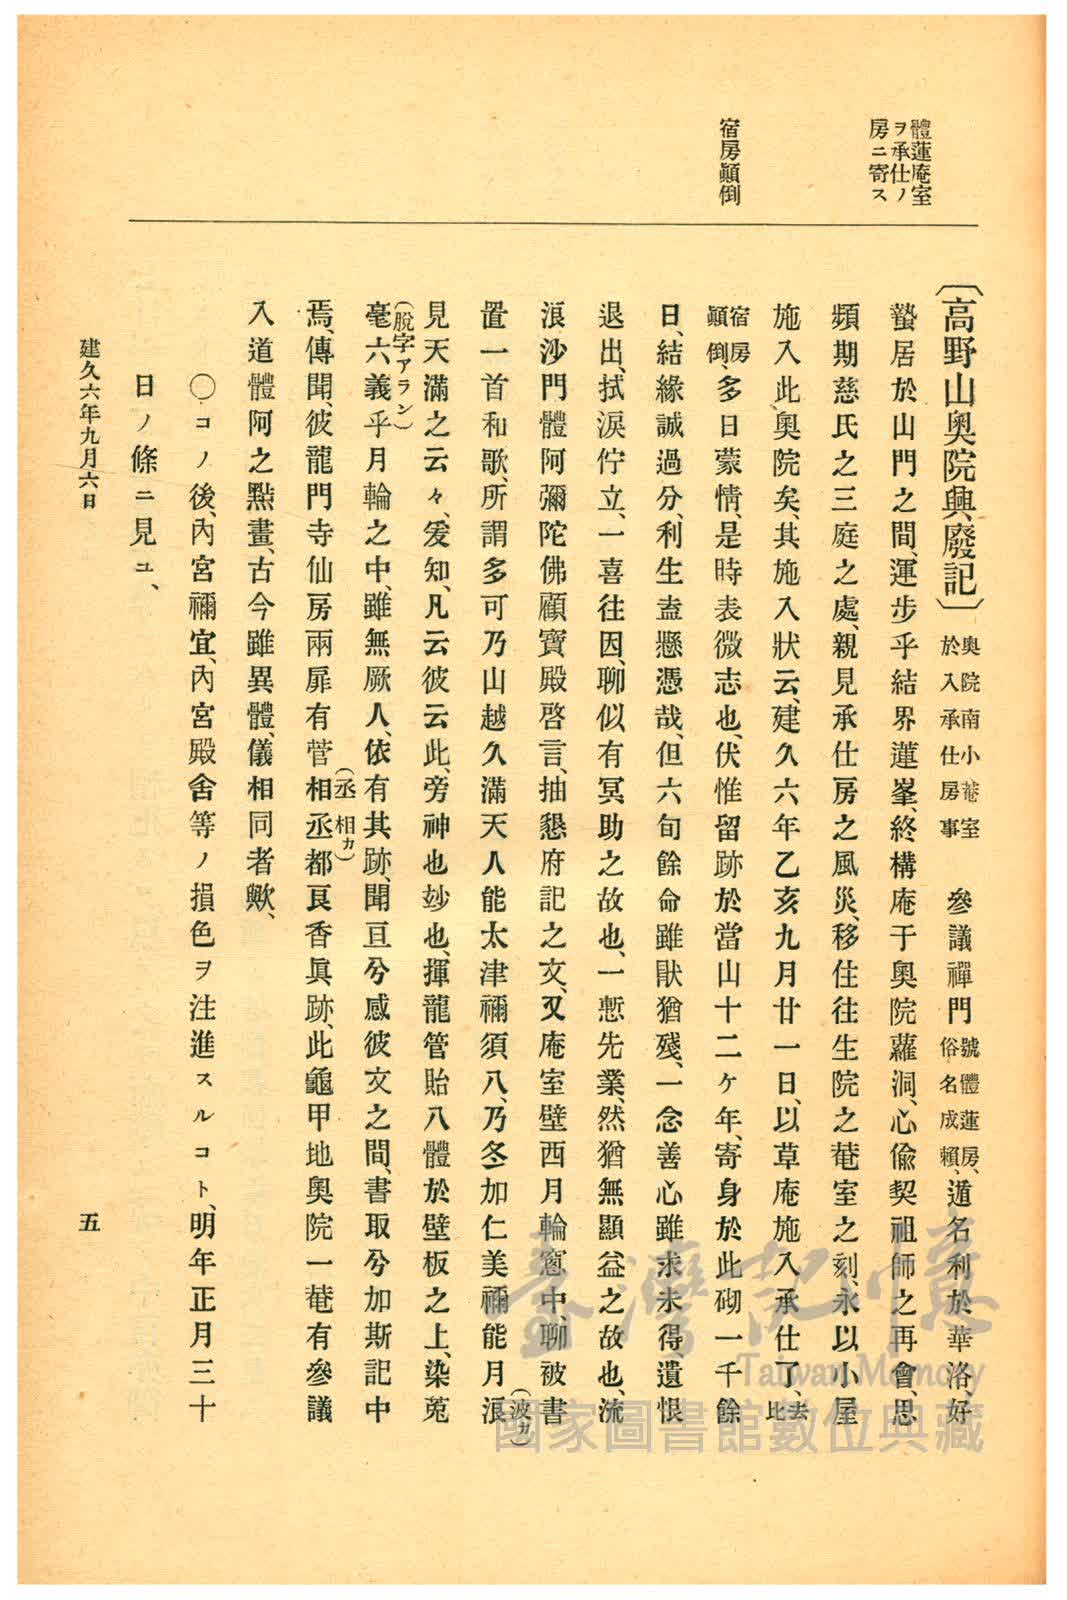 體蓮庵室
ヲ承仕ノ
房ニ寄ス
宿房顚倒
〔高野山奥院興廢記〕奥院南小菴室於入承仕房事　參議禪門號體蓮房、俗名成賴、遁名利於華洛、好
蟄居於山門之間、運步乎結界蓮峯、終構庵于奥院蘿洞、心偸契祖師之再會、思
頻期慈氏之三庭之處、親見承仕房之風災、移住往生院之菴室之刻、永以小屋
施入此奥院矣、其施入狀云、建久六年乙亥九月廿一日、以草庵施入承仕了、去比
宿房顚倒、多日蒙情、是時表微志也、伏惟留跡於當山十二ケ年、寄身於此砌一千餘
日、結緣誠過分、利生盍懸憑哉、但六旬餘命雖猒猶殘、一念善心雖求未得、遺恨
退出、拭淚佇立、一喜往因、聊似有冥助之故也、一慙先業、然猶無顯益之故也、流
浪沙門體阿彌陀佛顧寶殿啓言、抽懇府記之文、又庵室壁西月輪窓中、聊被書
置一首和歌、所謂多可乃山越久滿天人能太津禰須八、乃冬加仁美禰能月浪(波カ)
見天滿之云々、爰知、凡云彼云此、旁神也妙也、揮龍管貽八體於壁板之上、染菟
毫(脫字アラン)六義乎月輪之中、雖無厥人、依有其跡、聞亘兮感彼文之間、書取兮加斯記中
焉、傳聞、彼龍門寺仙房兩扉有菅相丞(丞相カ)都良香眞跡、此龜甲地奥院一菴有參議
入道體阿之點畫、古今雖異體、儀相同者歟、
〇コノ後、內宮禰宜、內宮殿舍等ノ損色ヲ注進スルコト、明年正月三十
日ノ條ニ見ユ、
建久六年九月六日
五
臺灣記憶
Taiwan Memory
國家圖書館數位典藏